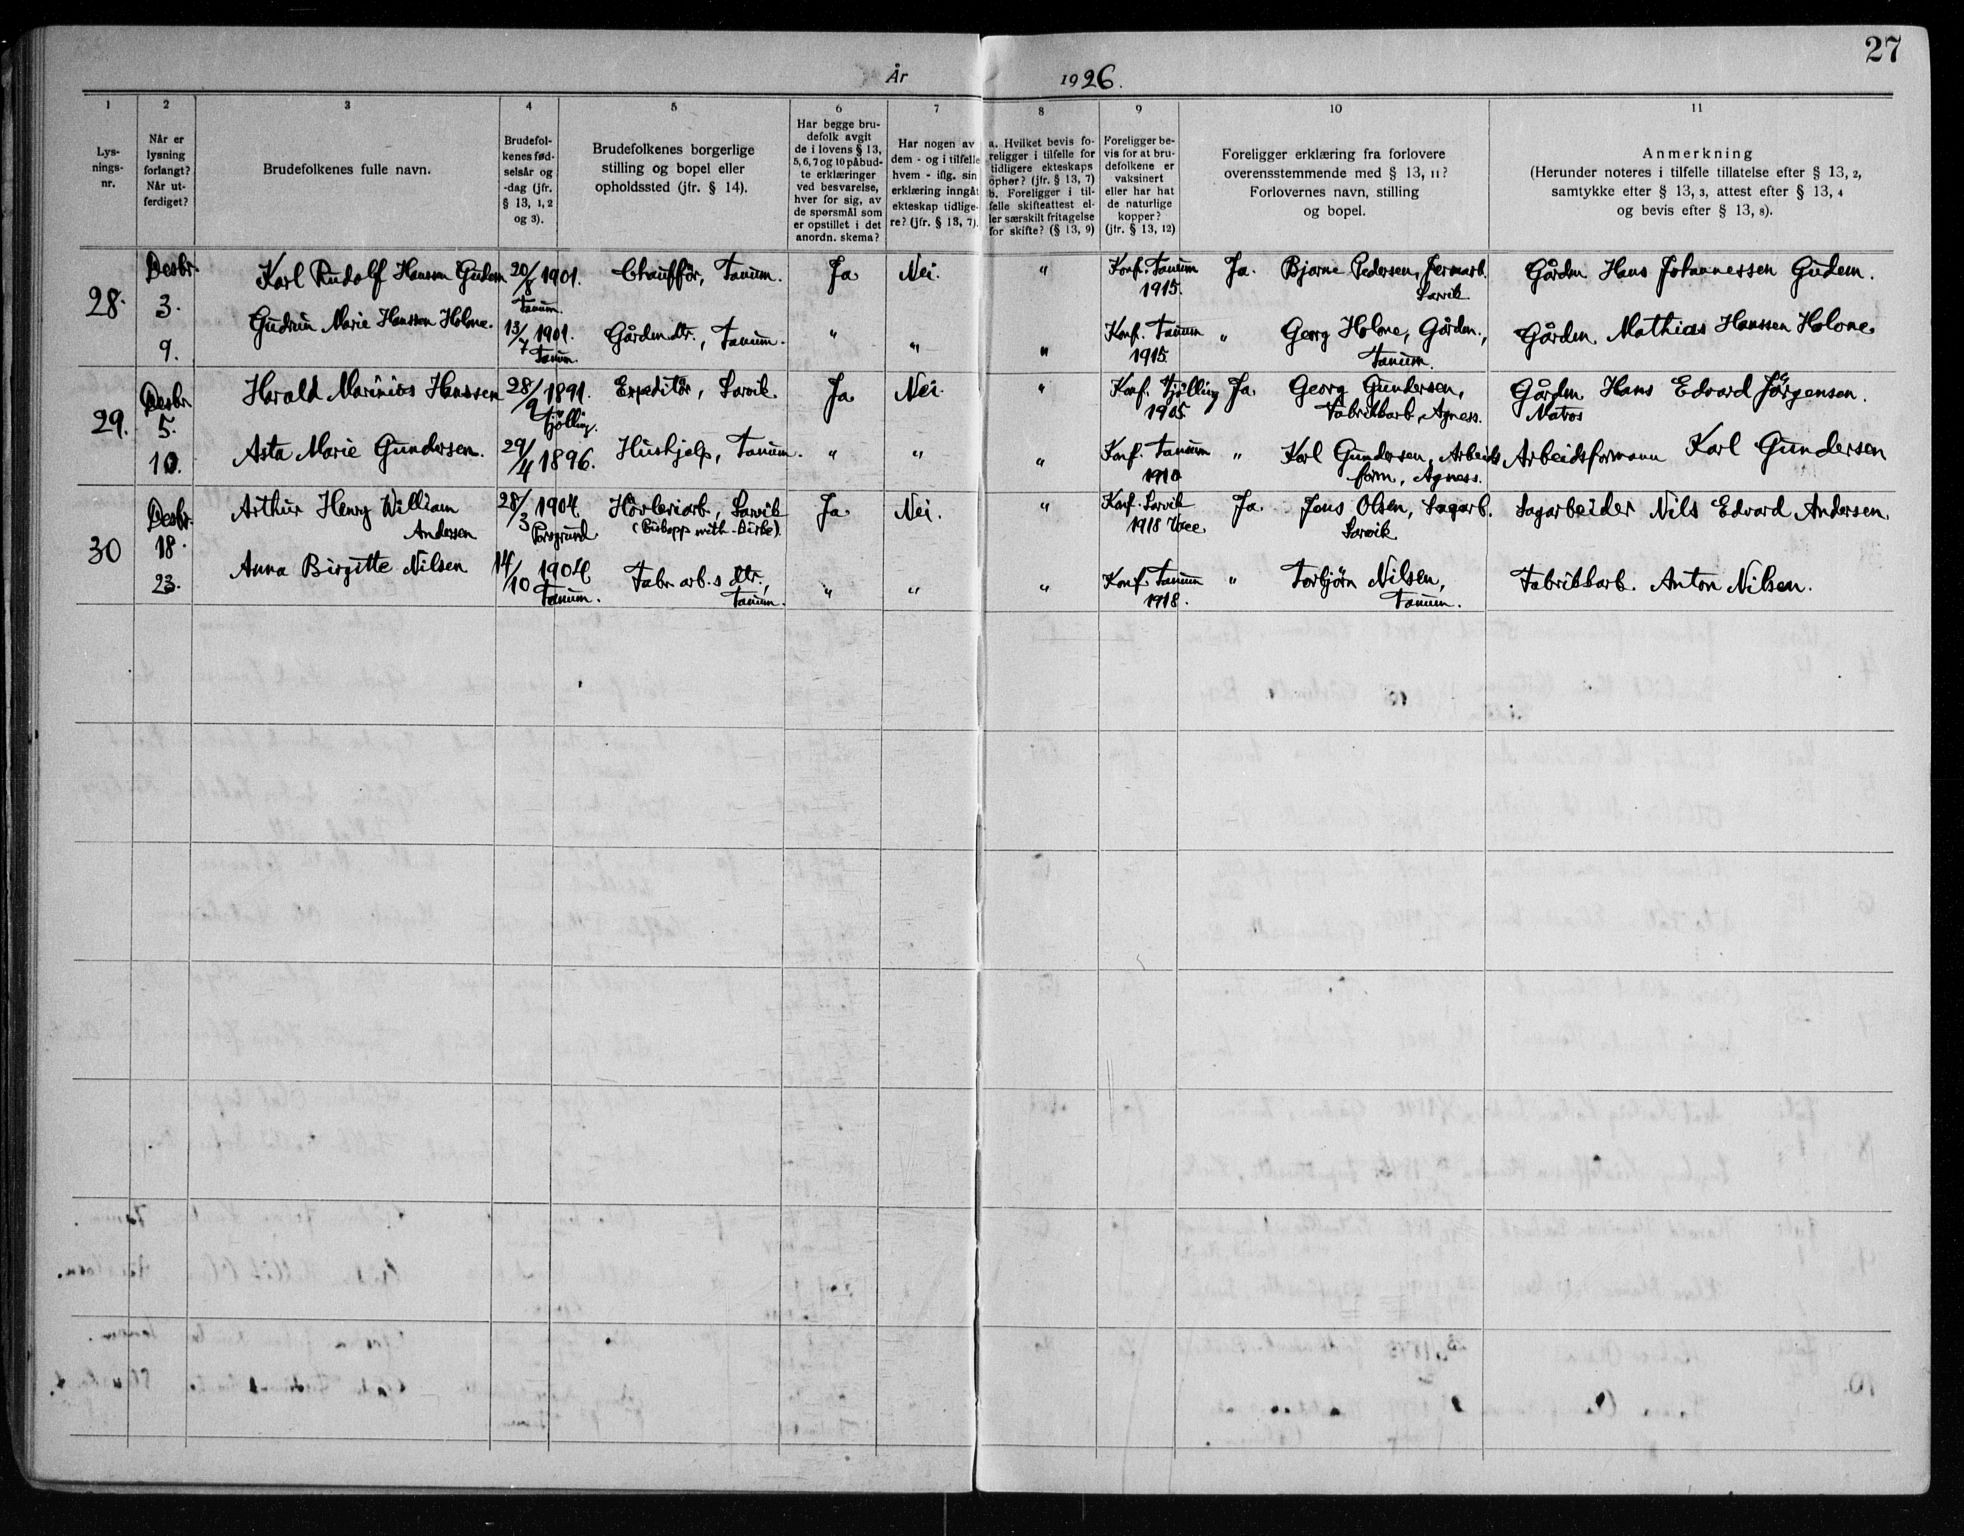 27
År 1926.
1 2 3 4 5 6 7 8 9 10 11
Lys-
nings-
nr.
Når er
lysning
forlangt?
Når ut-
ferdiget?
Brudefolkenes fulle navn.
Brudefol-
kenes fød-
selsår og
-dag (jfr.
§ 13, 1, 2
og 3).
Brudefolkenes borgerlige
stilling og bopel eller
opholdssted (jfr. § 14).
Har begge bru-
defolk avgit
de i lovens § 13,
5, 6, 7 og 10 påbud-
te erklæringer
ved besvarelse,
hver for sig, av
de spørsmål som
er opstillet i det
anordn. skema?
Har nogen av
dem - og i tilfelle
hvem - iflg. sin
erklæring inngåt
ekteskap tidlige-
re? (jfr. § 13, 7).
a. Hvilket bevis fo-
religger i tilfelle for
tidligere ekteskaps
ophør? (jfr. § 13, 7)
b. Foreligger i til-
felle skifteattest el-
ler særskilt fritagelse
for skifte? (§ 13, 9)
Foreligger be-
vis for at bru-
defolkene er
vaksinert
eller har hat
de naturlige
kopper?
(jfr. § 13, 12)
Foreligger erklæring fra forlovere
overensstemmende med § 13, 11?
Forlovernes navn, stilling
og bopel.
Anmerkning
(Herunder noteres i tilfelle tillatelse efter § 13, 2,
samtykke efter § 13, 3, attest efter § 13, 4
og bevis efter § 13, 8).
28.
Desbr.
3.
9.
Karl Rudolf Hansen Gudem
20/8 1901.
Tanum.
Chauffør, Tanum.
Ja
Nei.
"
Konf. Tanum
1915.
Ja.
Bjarne Pedersen, Jernarb.
Larvik
Gårdm. Hans Johannessen Gudem.
Gudrun Marie Hanssen Holone.
13/7 1901.
Tanum.
Gårdm.dtr., Tanum.
"
"
"
Konf. Tanum
1915
"
Georg Holone, Gårdm.,
Tanum.
Gårdm. Mathias Hanssen Holone.
29.
Desbr
5.
10.
Harald Marinius Hanssen
28/9 1891.
Hjølling.
Expeditør, Larvik.
Ja
Nei.
"
Konf. Hjølling
1905
Ja.
Georg Gundersen,
Fabrikkarb., Agness.
Gårdm. Hans Edvard Jørgensen.
Matros
Asta Marie Gundersen.
29/4 1896.
Hushjelp, Tanum.
"
"
"
Konf. Tanum
1910
"
Karl Gundersen, Arbeids
form., Agness.
Arbeidsformann Karl Gundersen
30
Desbr.
18.
23.
Arthur Henry William
Andersen
28/3 1904
Porsgrund.
Høvleriarb., Larvik
Ja
Nei.
"
Konf. Larvik
1918
Ja.
Jens Olsen, Sagarb.
Larvik
Sagarbeider Nils Edvard Andersen.
Anna Birgitte Nilsen
14/10 1904
Tanum.
Fabr.arb.s dtr.,
Tanum.
"
"
"
Konf. Tanum
1918.
"
Torbjørn Nilsen,
Tanum.
Fabrikkarb. Anton Nilsen.